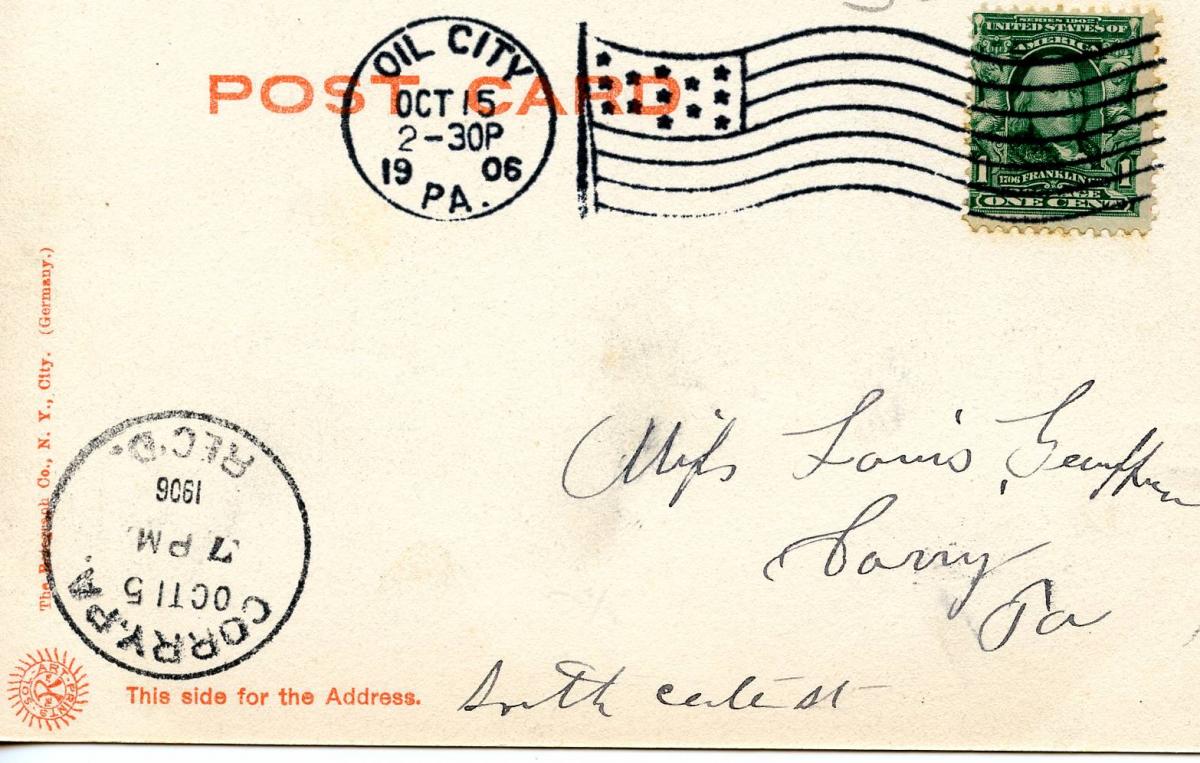 POST CARD
OIL CITY
OCT 15
2-30P
19 06
PA.
SERIES 1902
UNITED STATES OF
AMERICA
1706 FRANKLIN
1 1
ONE CENT
The Rotograph Co., N. Y., City. (Germany.)
REC'D.
1906
7 PM.
OCT 15
CORRY, PA.
Miss Louis
Corry
Pa
South st
SOL-ART-PRINTS
This side for the Address.